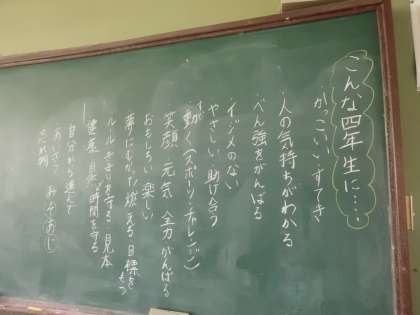 こんな四年生に…
かっこいい すてき
・人の気持ちがわかる
・べん強をがんばる
イジメのない
やさしい 助け合う
動く(スポーツ・チャレンジ)
笑顔 元気 全力 がんばる
おもしろい 楽しい
夢にむかって 燃える 目標をもつ
ルール きまりを守る 見本
健康 時間を守る
自分から進んで
あいさつ
忘れ物